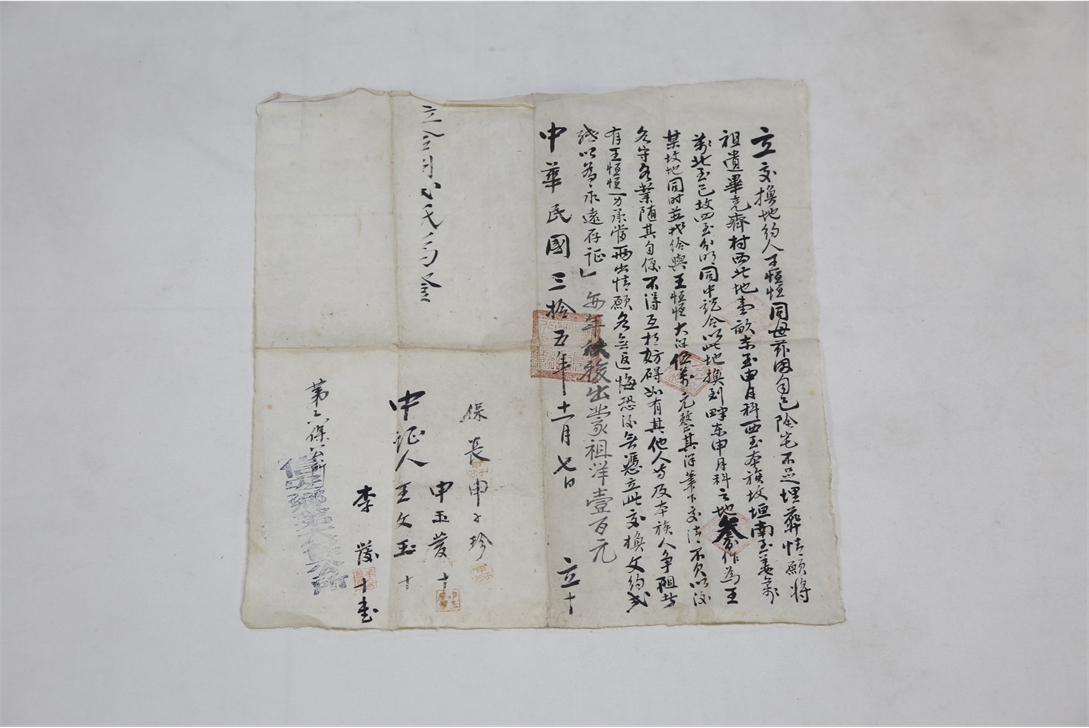 立交換地約人王恒恒同母 因自己陰宅不足埋葬情願將
祖遺畢克齊村西北地壹畝東至申月科西至本族墳垣南至姜
北至已故四至分明同中說合以此地換到 東申月科之地叁 作為王
某坟地同時並找給與王恒恒大洋伍萬元整其洋筆下交清不欠以後
各守各業隨其自便不得互相妨碍如有其他人等及本族人争阻者
有王恒恒一力承當兩出情願各無返悔恐後無憑立此交換文約弍
纸以為永遠存证 每年秋後出蒙祖洋壹百元
中華民國三拾五年十一月七日 立十
保長申 珍
申玉 十
中证人 王文玉 十
李 十
第六保公所
立合同 為